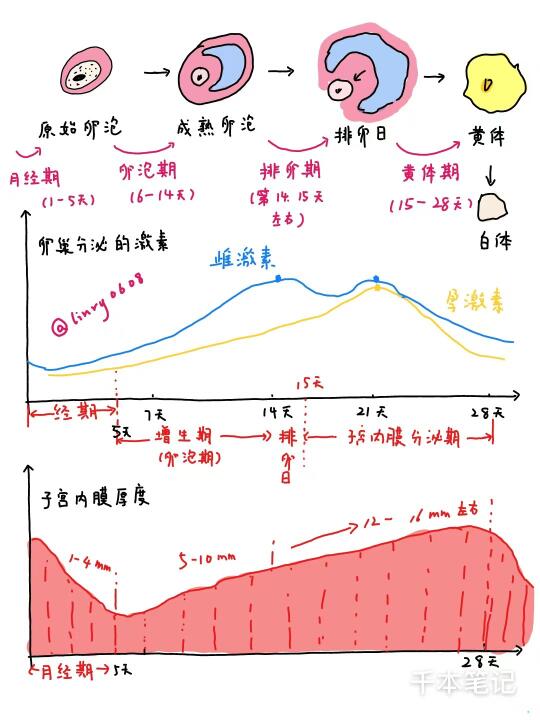 原始卵泡
成熟卵泡
排卵日
黄体
月经期
(1-5天)
卵泡期
(6-14天)
排卵期
(第14.15天
左右)
黄体期
(15-28天)
白体
卵巢分泌的激素
雌激素
孕激素
@linry0608
15天
经期
5天
7天
14天
21天
28天
增生期
(卵泡期)
排
卵
日
子宫内膜分泌期
子宫内膜厚度
1-4mm
5-10mm
12-16mm左右
月经期
5天
28天
千本笔记